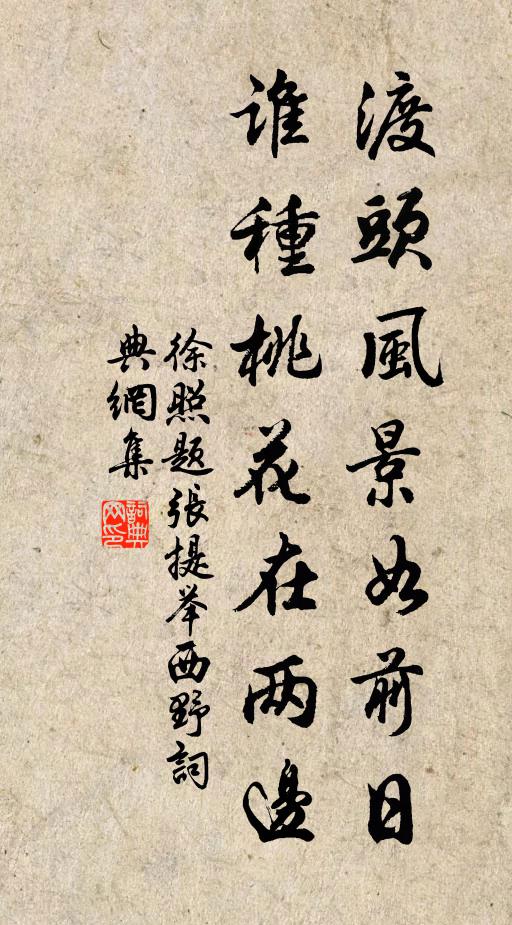 渡頭風景如前日
誰種桃花在两邊
徐照題張提举西野詞
典網集
詞典網印